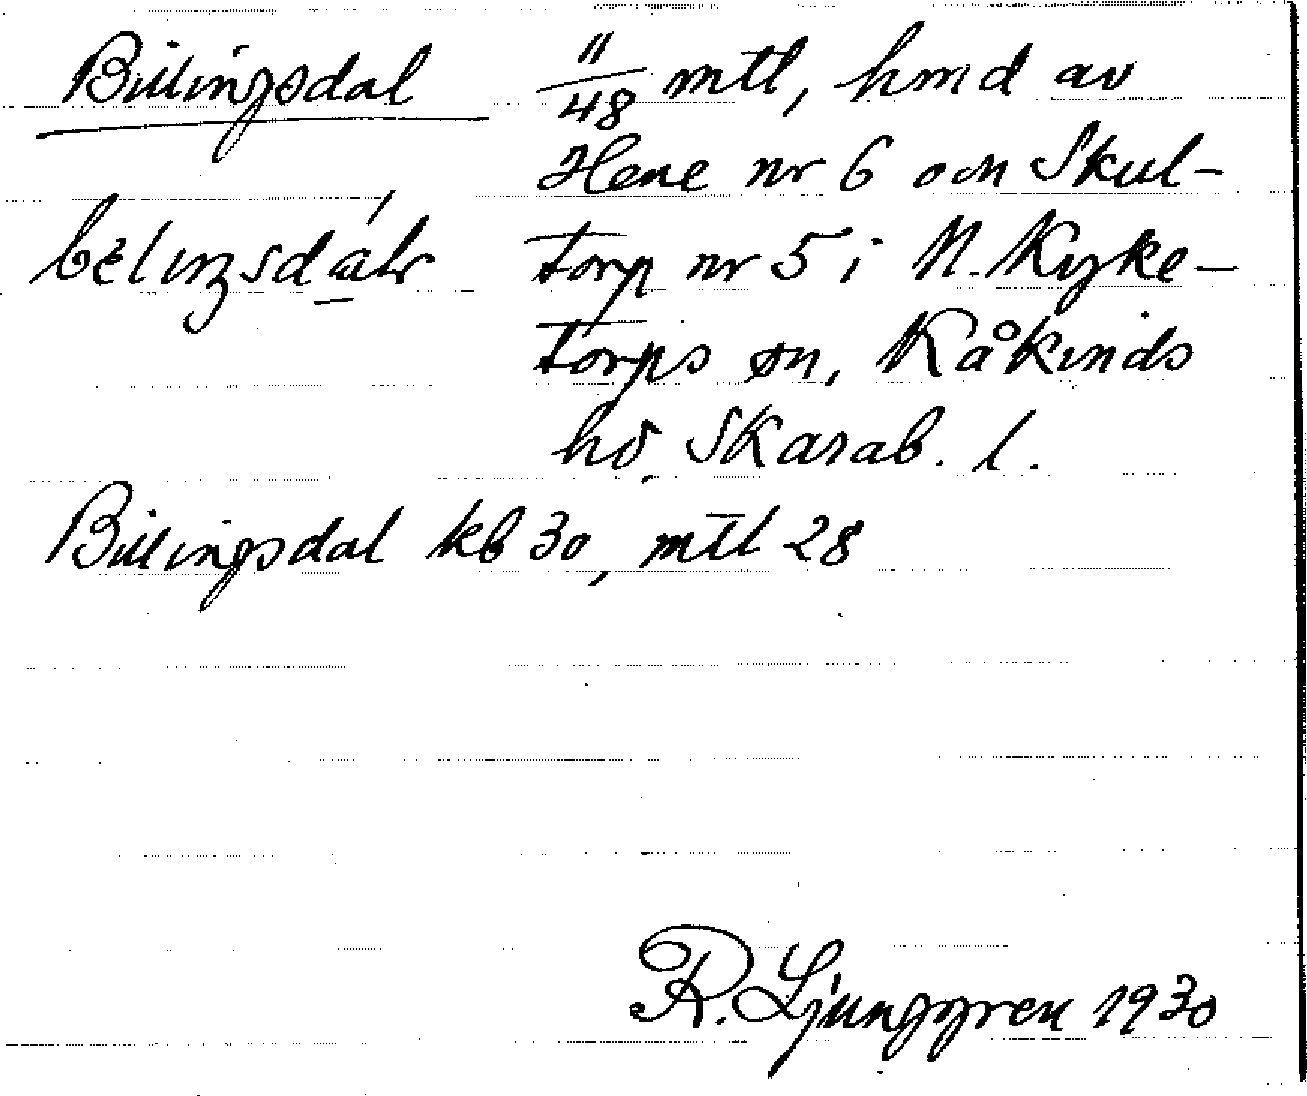 Billingsdal 11/48 mtl, hmd av
Hene nr 6 och Skul-
torp nr 5 i N. Kyrke-
torps sn, Kåkinds
hd. Skarab. l.
Billingsdal kb 30, mtl 28
R. Ljunggren 1930